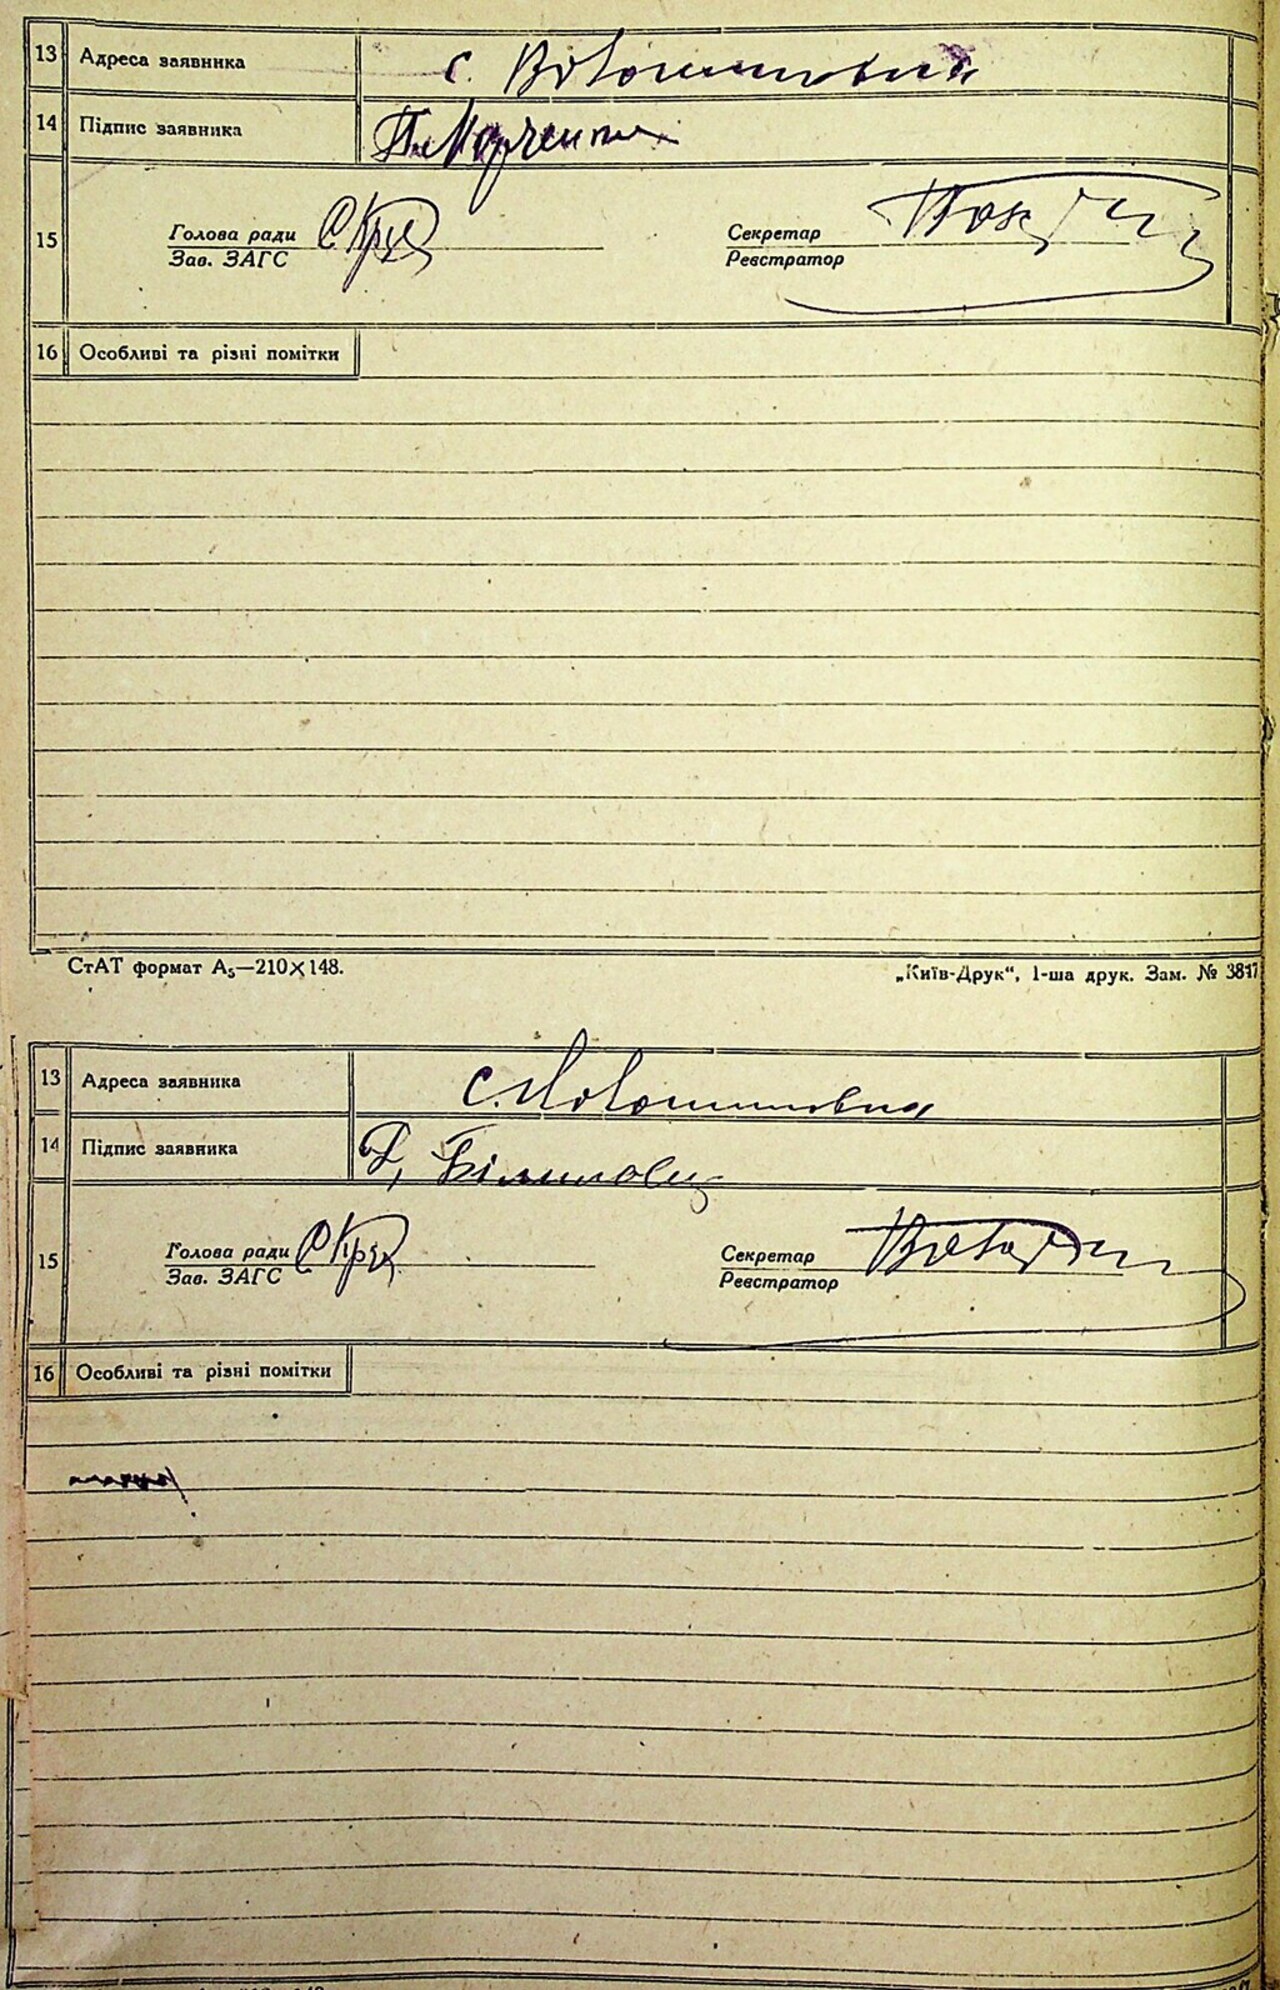 13 Адреса заявника с. Волошиновка
14 Підпис заявника Марченко
15 Голова ради Секретар
Зав. ЗАГС Реєстратор
16 Особливі та різні помітки
СтАТ формат А₅—210×148. „Київ-Друк“, 1-ша друк. Зам. № 3817
13 Адреса заявника с. Волошиновка
14 Підпис заявника
15 Голова ради Секретар
Зав. ЗАГС Реєстратор
16 Особливі та різні помітки